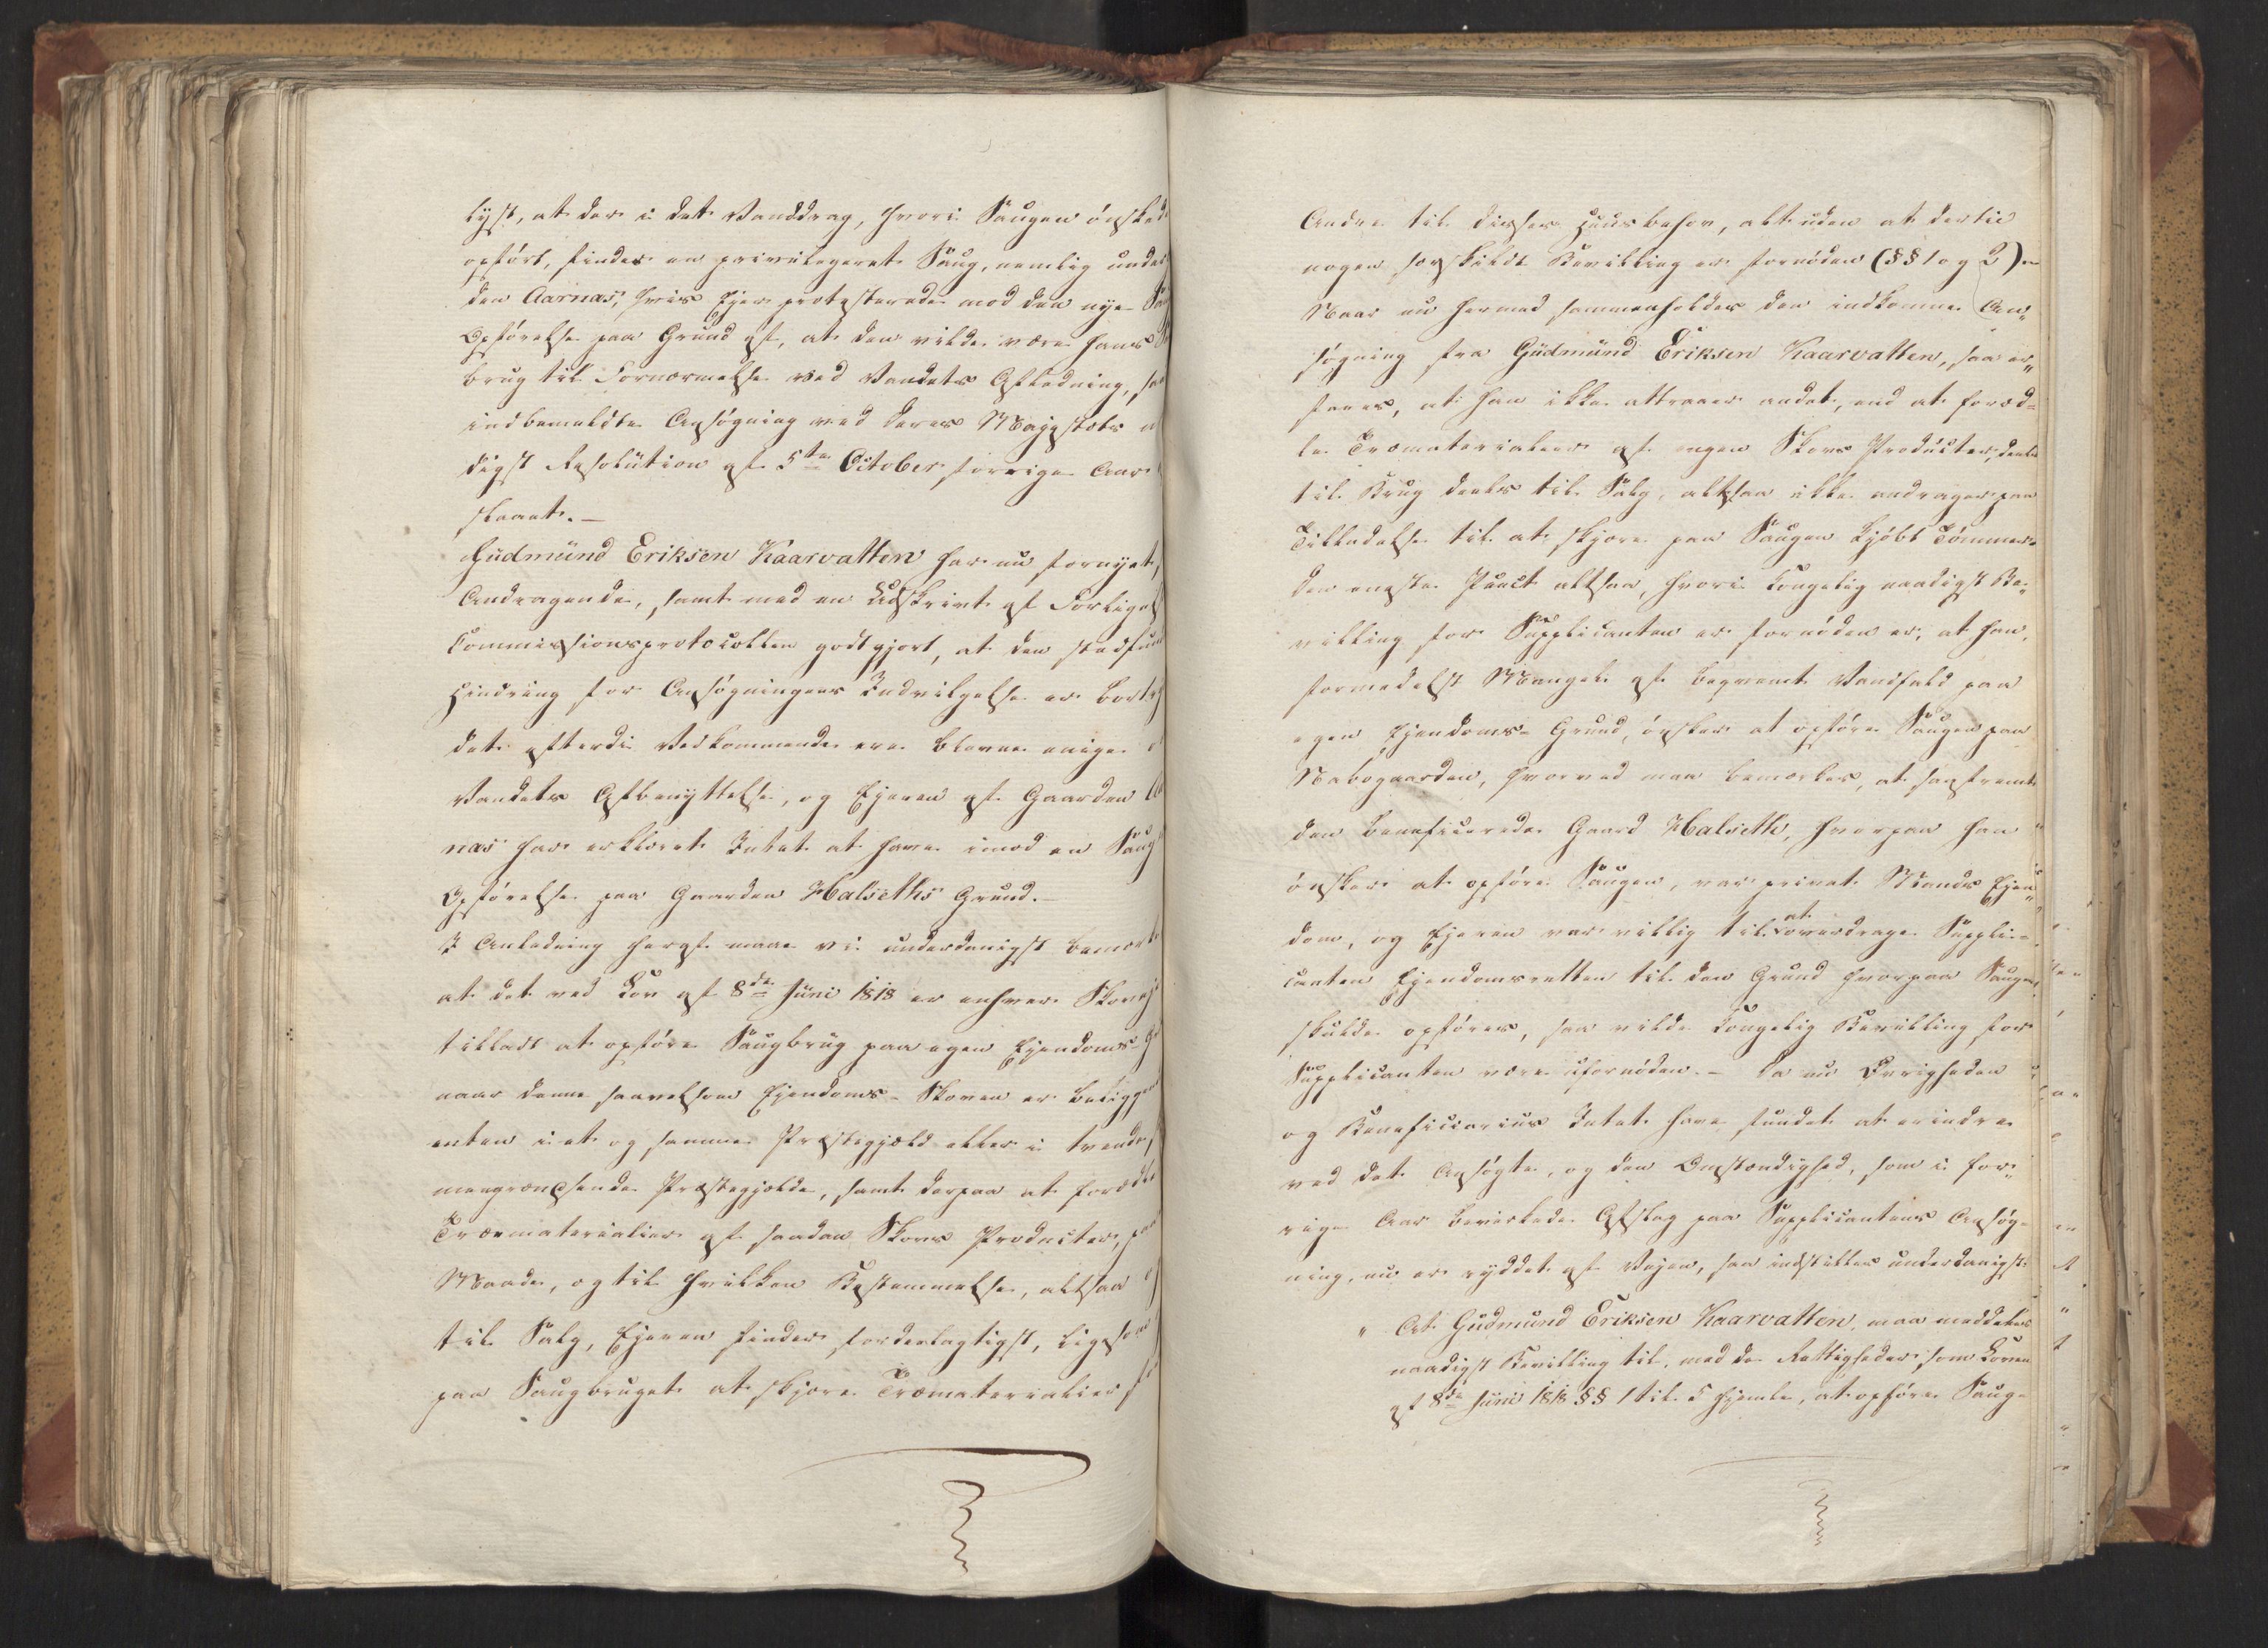 lyst, at der i det Vanddrag, hvori Saugen ønskedes
opført, findes en privilegeret Saug, nemlig under
den Aarnæs, hvis Ejer protesterede mod den nye
Opførelse paa Grund af, at den vilde være hans
brug til Fornærmelse ved Vandets Afledning,
indbemeldte Ansøgning ved Deres Majestæts
digst Resolution af 5te October forrige Aar
slaaet. —
Gudmund Eriksen Kaarvatten har nu fornyet
Andragende, samt med en Udskrivt af Forligels
Commissionsprotocollen godtgjort, at den stedfund
Hindring for Ansøgningens Indvilgelse er bortry
det efterdi Vedkommende ere blevne enige
Vandets Afbenyttelse, og Ejeren af Gaarden
næs har erklæret Intet at have imod en Saugs
Opførelse paa Gaarden Halseths Grund. —
I Anledning heraf maae vi underdanigst bemærke
at det ved Lov af 8de Juni 1818 er enhver Skovej
tilladt at opføre Saugbrug paa egen Ejendoms-
naar denne saavelsom Ejendoms-Skoven er beliggende
enten i et og samme Præstegjæld eller i tvende
mengrændsende Præstegjælde, samt derpaa at foræd
Træmaterialier af saadan Skovs Producter, paa
Maade, og til hvilken Bestemmelse, altsaa og
til Salg, Ejeren finder fordeelagtigst, ligesom
paa Saugbruget at skjære Træmaterialier
Andre til disses Huusbehov, alt uden at dertil
nogen særskildt Bevilling er fornøden (§§ 1 og 2) —
Naar nu hermed sammenholdes den indkomne An„
søgning fra Gudmund Eriksen Kaarvatten, saa er„
fares, at han ikke attraaer andet, end at foræd-
le Træmaterialier af egen Skovs Producter, deels
til Brug deels til Salg, altsaa ikke andrager paa
Tilladelse til at skjære paa Saugen kjøbt Tømmer.
Den eneste Punct altsaa, hvori Kongelig naadigst Be„
villing for Supplicanten er fornøden er, at han,
formedelst Mangel af beqvemt Vandfald paa
egen Ejendoms-Grund, ønsker at opføre Saugen paa
Nabogaarden, hvorved maa bemærkes, at saafremt
den beneficerede Gaard Halseth, hvorpaa han
ønsker at opføre Saugen, var privat Mands Ejen„
dom, og Ejeren var villig til at overdrage Suppli-
canten Ejendomsretten til den Grund hvorpaa Saugen
skulde opføres, saa vilde Kongelig Bevilling for
Supplicanten være ufornøden. — Da nu Øvrigheden
og Beneficiarius Intet have fundet at erindre
ved det Ansøgte, og den Omstændighed, som i for„
rige Aar bevirkede Afslag paa Supplicantens Ansøg-
ning, nu er ryddet af Vejen, saa indstilles underdanigst:
„ At Gudmund Eriksen Kaarvatten, maa meddeles
naadigst Bevilling til, med de Rettigheder som Loven
af 8de Juni 1818 §§ 1 til 5 hjemle, at opføre Saug-